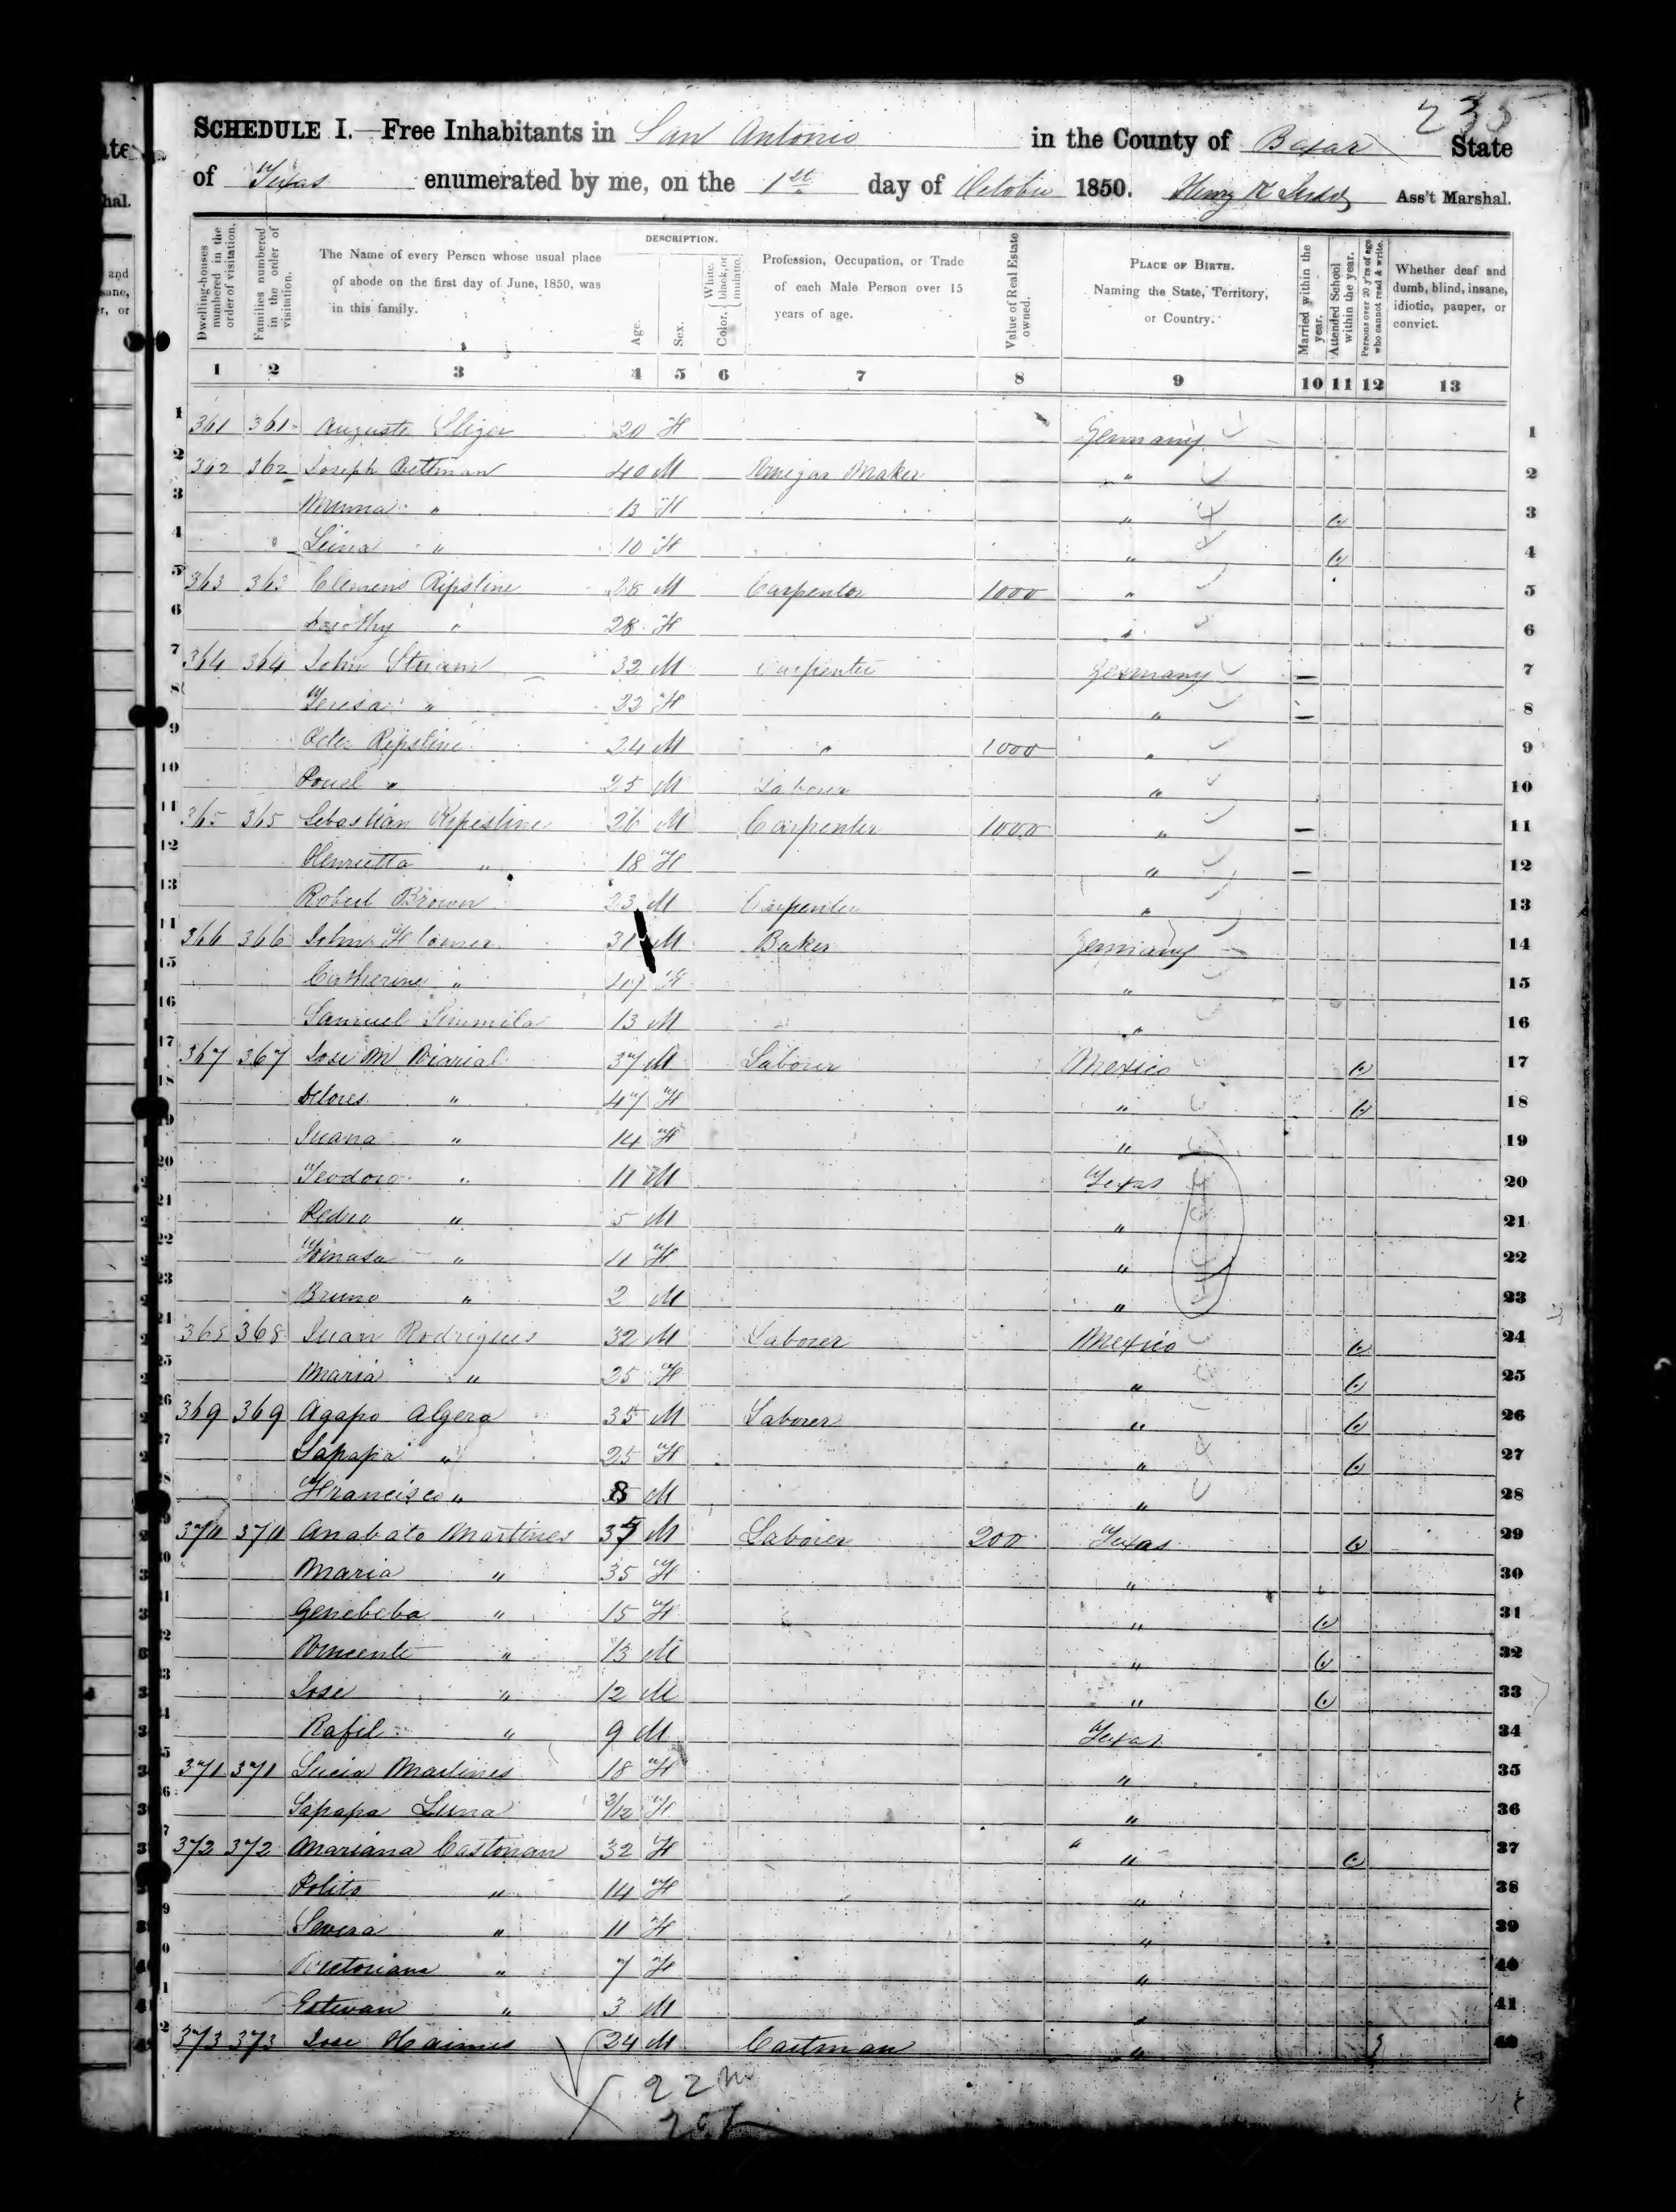 235
SCHEDULE I.—Free Inhabitants in San Antonio in the County of Bexar State
of Texas enumerated by me, on the 1st day of October 1850. Henry K Ass't Marshal.
Dwelling-houses numbered in the order of visitation.
Families numbered in the order of visitation.
The Name of every Person whose usual place of abode on the first day of June, 1850, was in this family.
DESCRIPTION.
Age.
Sex.
Color, { White, black, or mulatto.
Profession, Occupation, or Trade of each Male Person over 15 years of age.
Value of Real Estate owned.
PLACE OF BIRTH. Naming the State, Territory, or Country.
Married within the year.
Attended School within the year.
Persons over 20 y'rs of age who cannot read & write.
Whether deaf and dumb, blind, insane, idiotic, pauper, or convict.
1 2 3 4 5 6 7 8 9 10 11 12 13
1 361 361 Auguste 20 F Germany 1
2 362 362 Joseph 40 M Vinegar Maker " 2
3 Minna " 13 F " 3
4 Leina " 10 F " 4
5 363 363 Clemens Ripstine 28 M Carpenter 1000 " 5
6 Dorothy " 28 F " 6
7 364 364 John 32 M Carpenter Germany — 7
8 Teresa " 22 F " — 8
9 Peter Ripstine 24 M " 1000 " 9
10 " 25 M Laborer " 10
11 365 365 Sebastian Ripestine 26 M Carpenter 1000 " — 11
12 Henrietta " 18 F " — 12
13 Robert Brown 23 M Carpenter " 13
14 366 366 John 31 M Baker Germany 14
15 Catherine " 47 F " 15
16 Samuel 13 M " 16
17 367 367 Jose M 37 M Laborer Mexico 17
18 Delores " 47 F " 18
19 Juana " 14 F " 19
20 Teodoro " 11 M Texas 20
21 Pedro " 5 M " 21
22 Tomasa " 11 F " 22
23 Bruno " 2 M " 23
24 368 368 Juan Rodrigues 32 M Laborer Mexico 24
25 Maria " 25 F " 25
26 369 369 Agapo Algera 35 M Laborer " 26
27 Sapapa " 25 F " 27
28 Francisco " 8 M " 28
29 370 370 Anabato Martines 37 M Laborer 200 Texas 29
30 Maria " 35 F " 30
31 Genebeba " 15 F " 31
32 Vincente " 13 M " 32
33 Jose " 12 M " 33
34 Rafil " 9 M Texas 34
35 371 371 Lucia Martines 18 F " 35
36 Sapapa Luna 3/12 F " 36
37 372 372 Mariana Castonan 32 F " 37
38 Polito " 14 F " 38
39 Severa " 11 F " 39
40 Victoriana " 7 F " 40
41 Estevan " 3 M " 41
42 373 373 Jose 24 M Cartman " 42
22 m
20 f